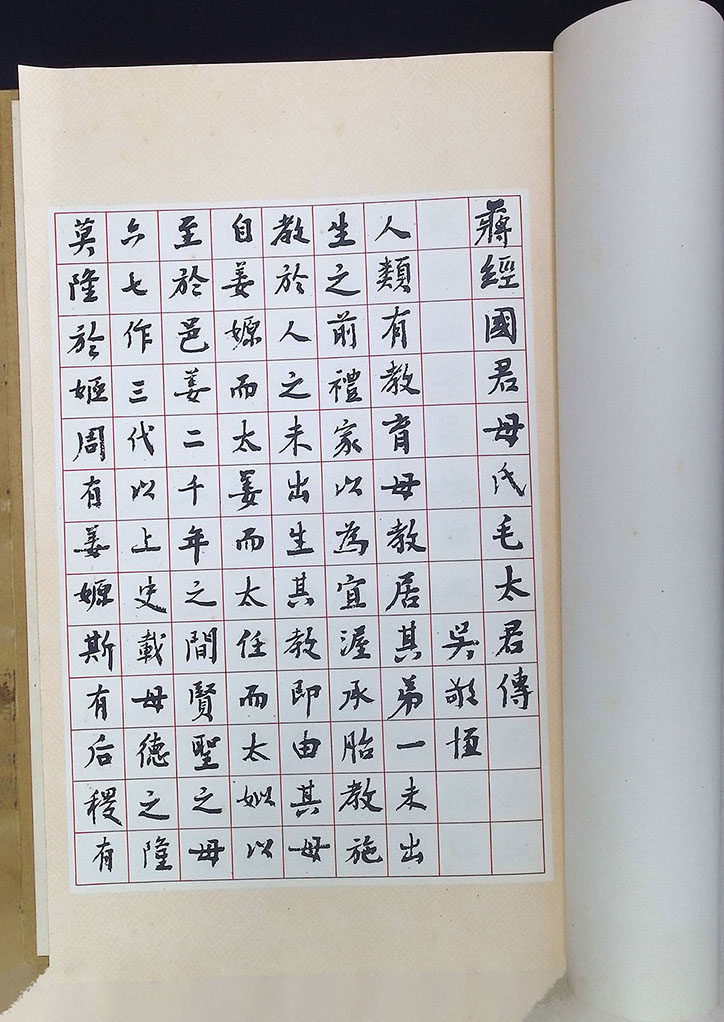 蔣經國君母氏毛太君傳
吳敬恆
人類有教育母教居其弟一未出
生之前禮家以為宜渥承胎教施
教於人之未出生其教即由其母
自姜嫄而太姜而太任而太姒以
至於邑姜二千年之間賢聖之母
六七作三代以上史載母德之隆
莫隆於姬周有姜嫄斯有后稷有